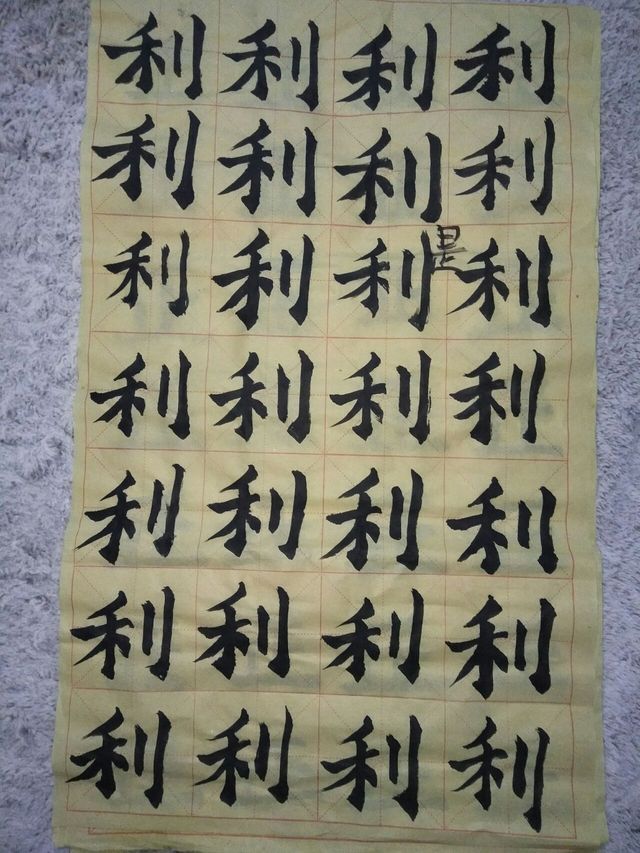 利利利利
利利利利
利利利是利
利利利利
利利利利
利利利利
利利利利